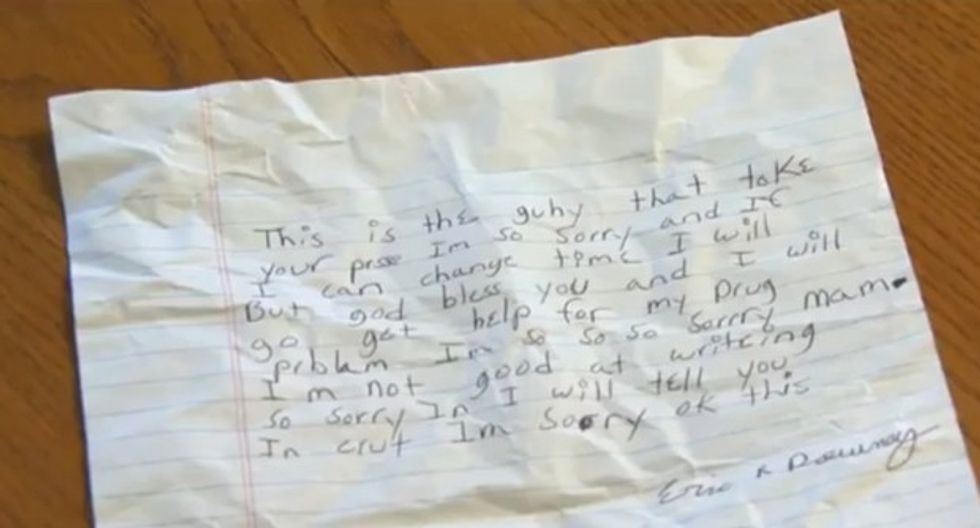 This is the guhy that take
your prse Im so sorry and If
I can change time I will
But god bless you and I will
go get help for my Drug
prblum Im so so so sorrry mam.
I'm not good at writeing
so sorry In I will tell you
In crut Im sorry ok this
Eric Downey